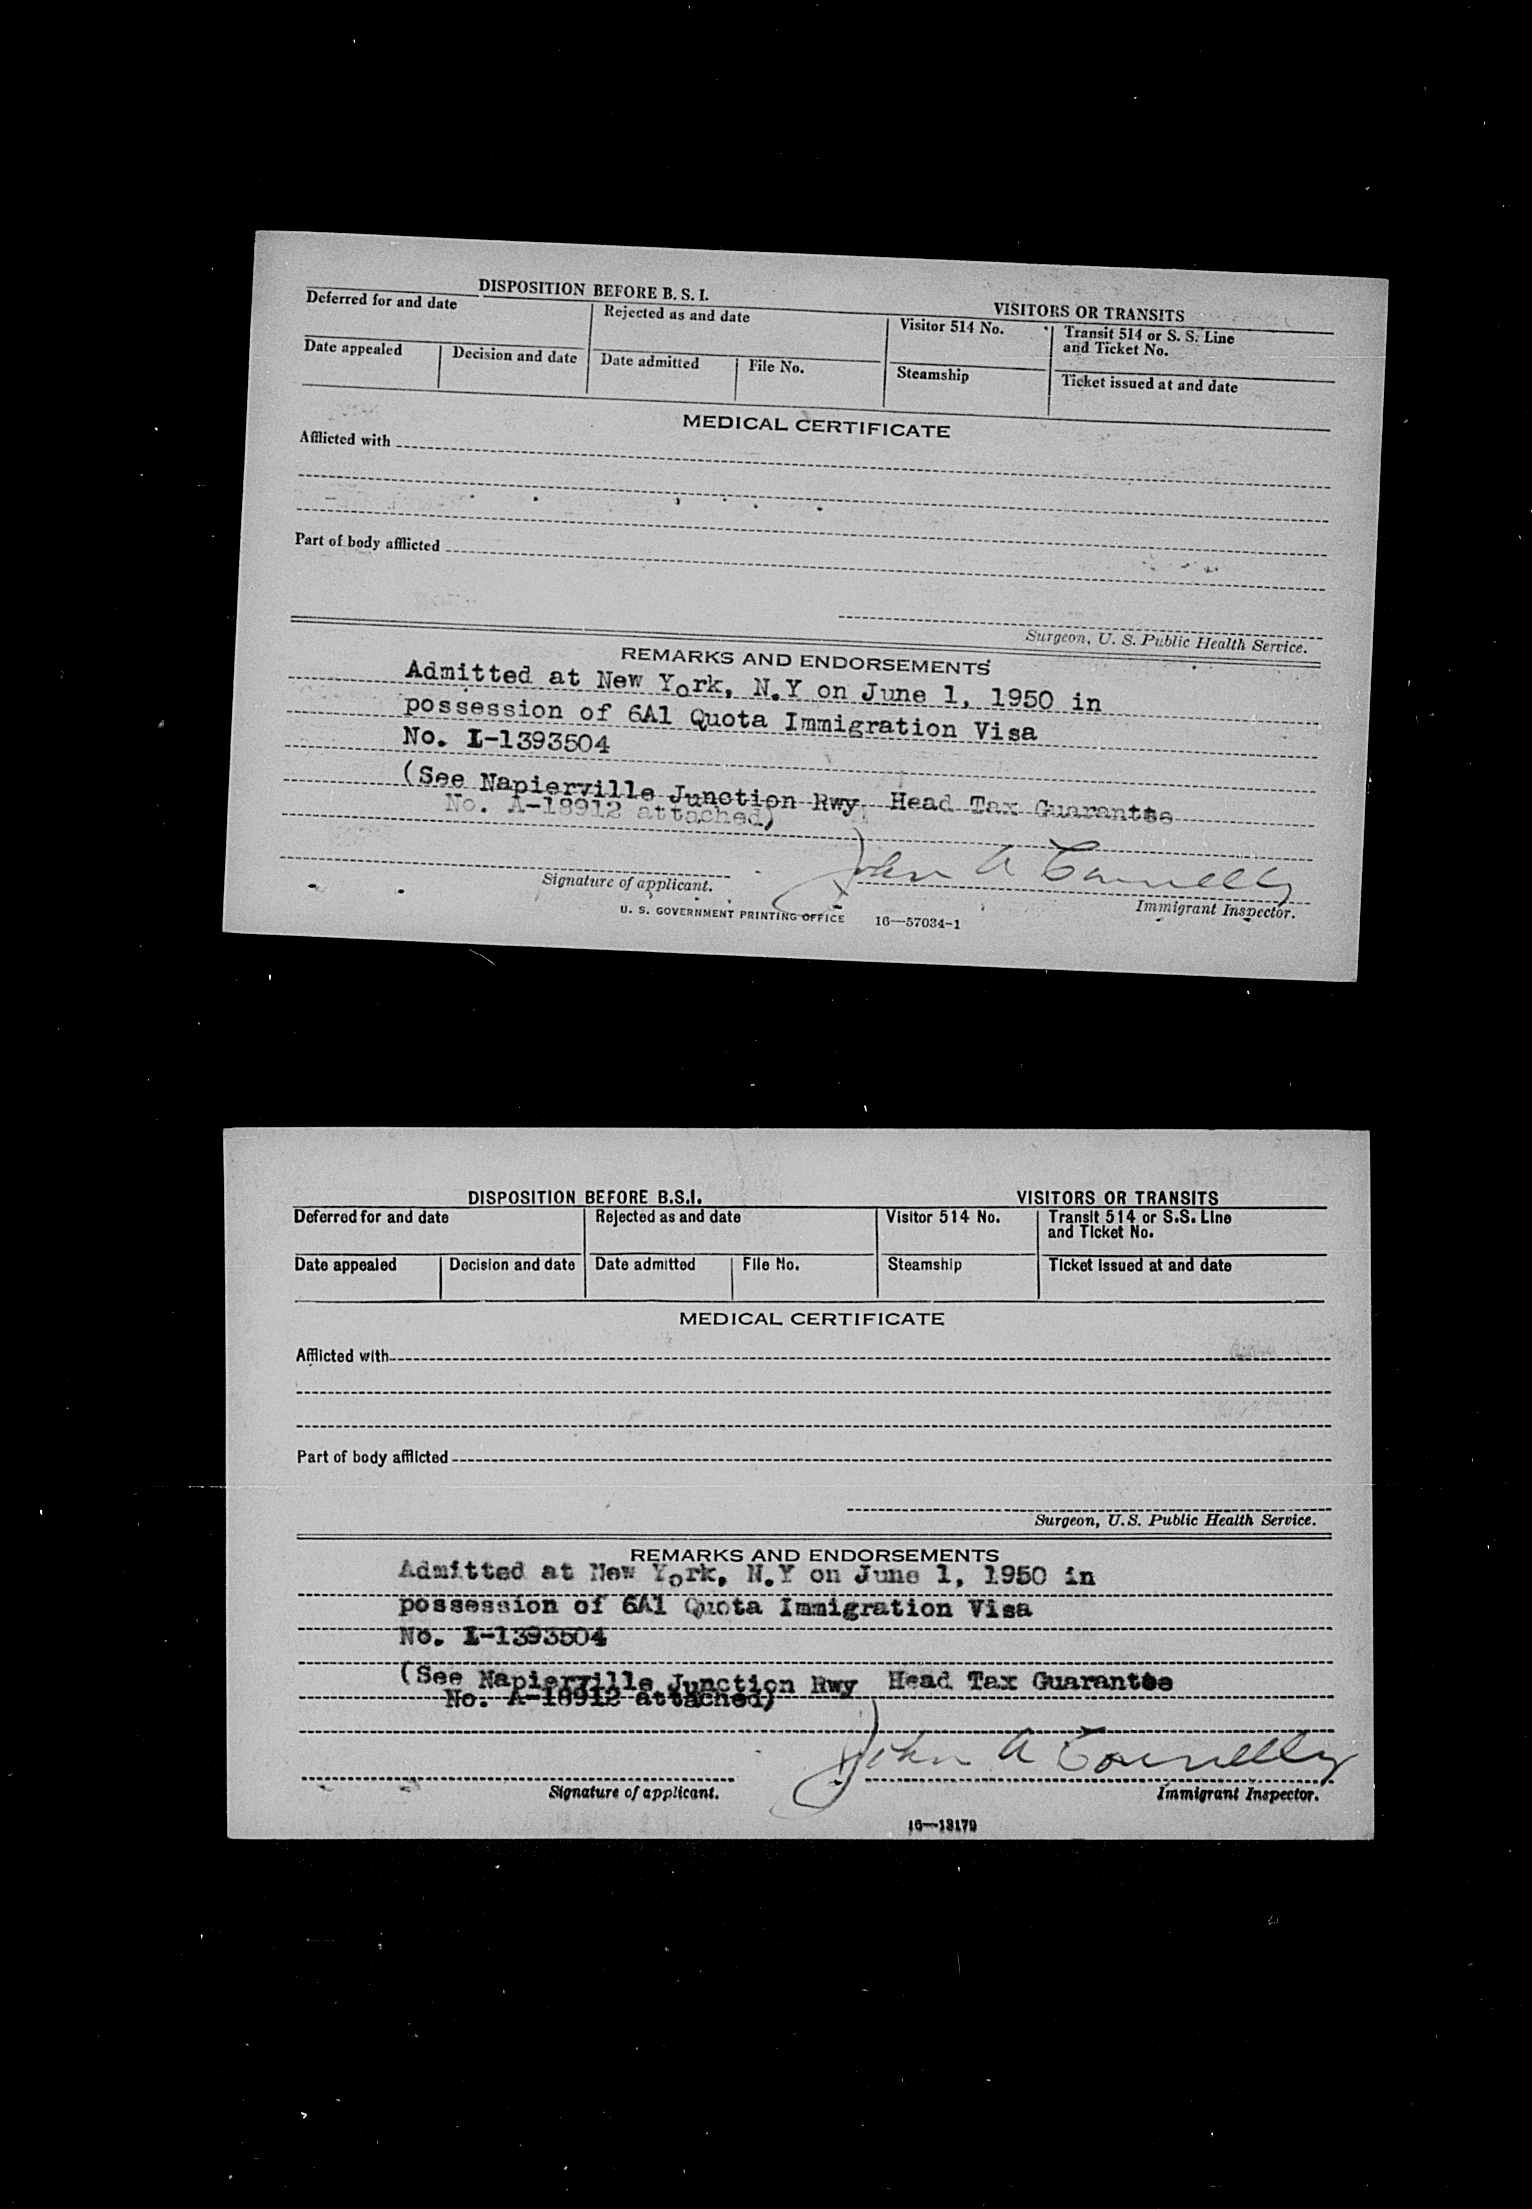 DISPOSITION BEFORE B. S. I.
VISITORS OR TRANSITS
Deferred for and date
Rejected as and date
Visitor 514 No.
Transit 514 or S. S. Line
and Ticket No.
Date appealed
Decision and date
Date admitted
File No.
Steamship
Ticket issued at and date
MEDICAL CERTIFICATE
Afflicted with
Part of body afflicted
Surgeon, U. S. Public Health Service.
REMARKS AND ENDORSEMENTS
Admitted at New York, N.Y on June 1, 1950 in
possession of 6A1 Quota Immigration Visa
No. I-1393504
(See Napierville Junction Rwy Head Tax Guarantee
No. A-18912 attached)
John A Connelly
Signature of applicant.
Immigrant Inspector.
U. S. GOVERNMENT PRINTING OFFICE 16—57034-1
DISPOSITION BEFORE B.S.I.
VISITORS OR TRANSITS
Deferred for and date
Rejected as and date
Visitor 514 No.
Transit 514 or S.S. Line
and Ticket No.
Date appealed
Decision and date
Date admitted
File No.
Steamship
Ticket issued at and date
MEDICAL CERTIFICATE
Afflicted with
Part of body afflicted
Surgeon, U.S. Public Health Service.
REMARKS AND ENDORSEMENTS
Admitted at New York, N.Y on June 1, 1950 in
possession of 6A1 Quota Immigration Visa
No. I-1393504
(See Napierville Junction Rwy Head Tax Guarantee
No. A-18912 attached)
John A Connelly
Signature of applicant.
Immigrant Inspector.
16—13179